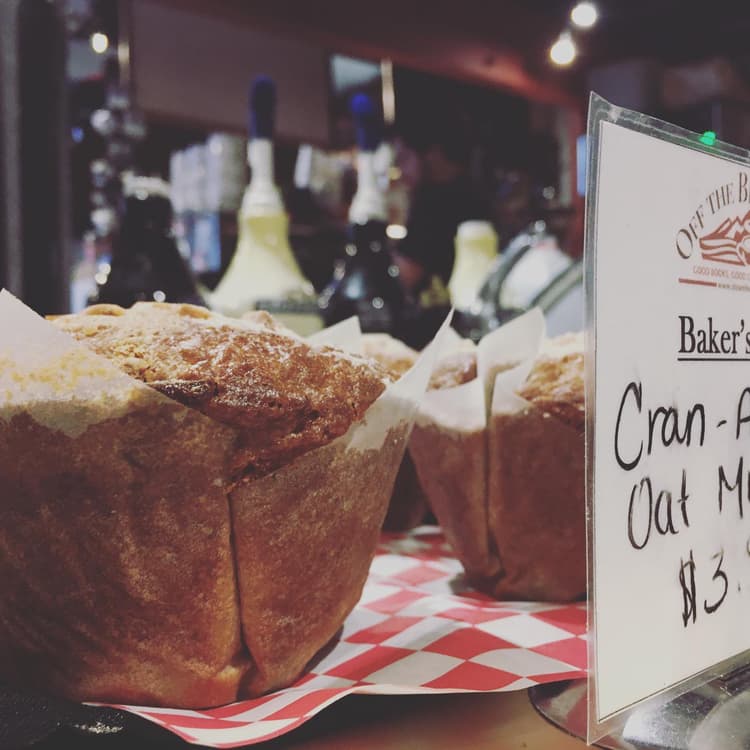 OFF THE B
GOOD BOOKS, GOOD
Baker's
Cran-A
Oat M
$3.